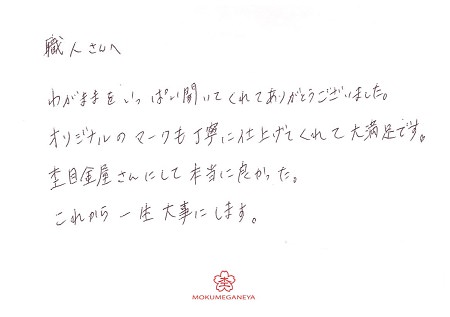 職人さんへ
わがままをいっぱい聞いてくれてありがとうございました。
オリジナルのマークも丁寧に仕上げてくれて大満足です。
杢目金屋さんにして本当に良かった。
これから一生大事にします。
杢
MOKUMEGANEYA